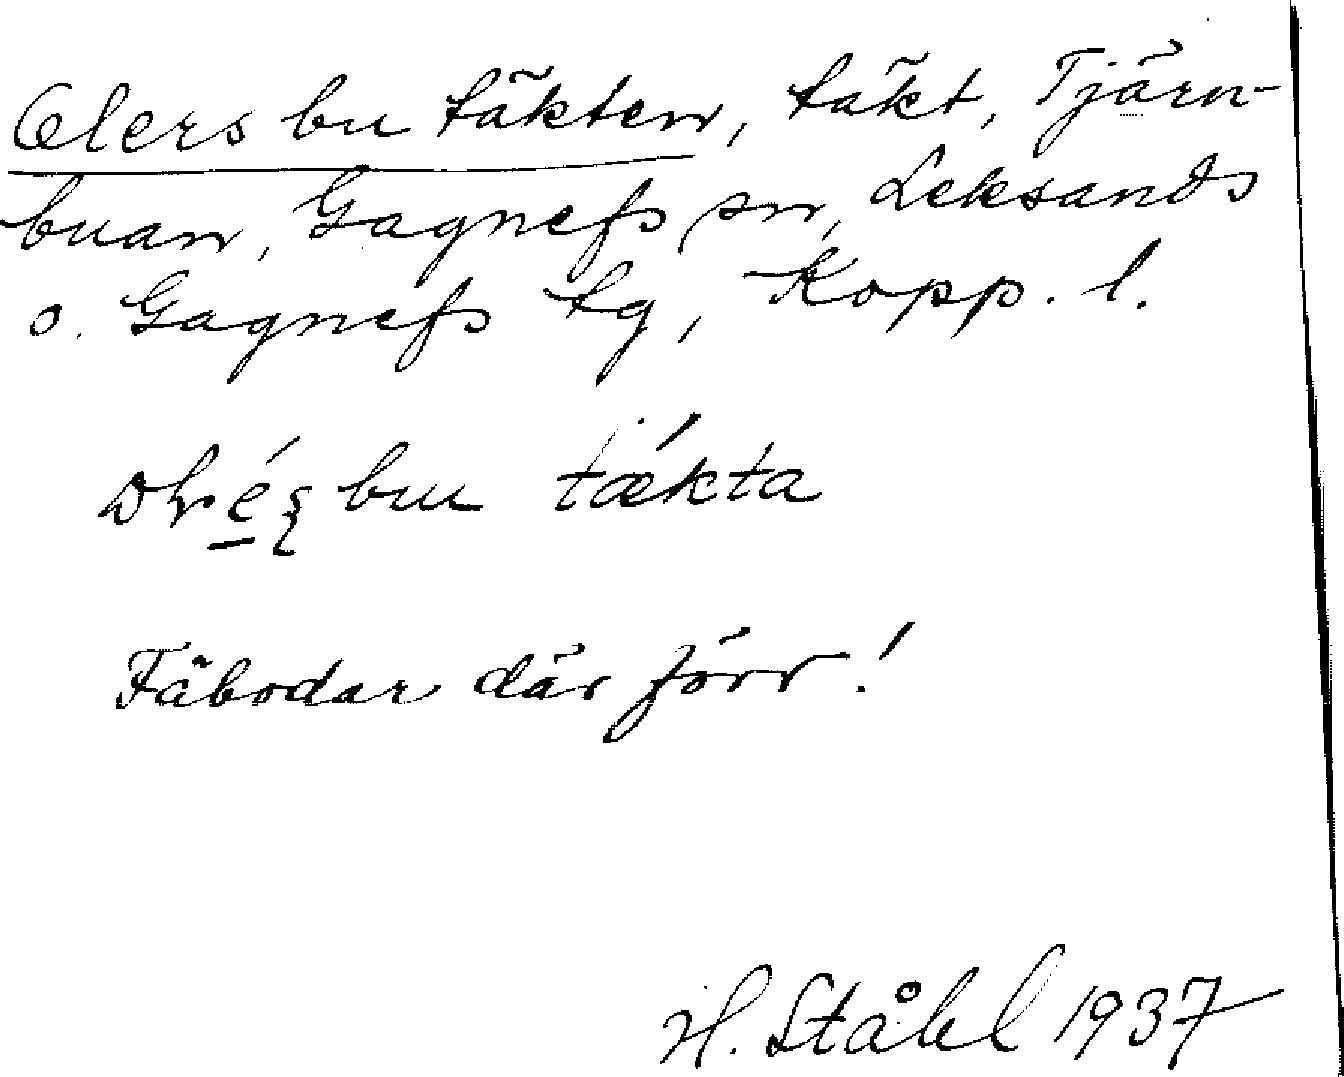 Olersbutäkten, täkt, Tjärn-
buan, Gagnefs sn, Leksands
o. Gagnefs tg, Kopp. l.
bu tækta
Fäbodar där förr!
H. Ståhl 1937